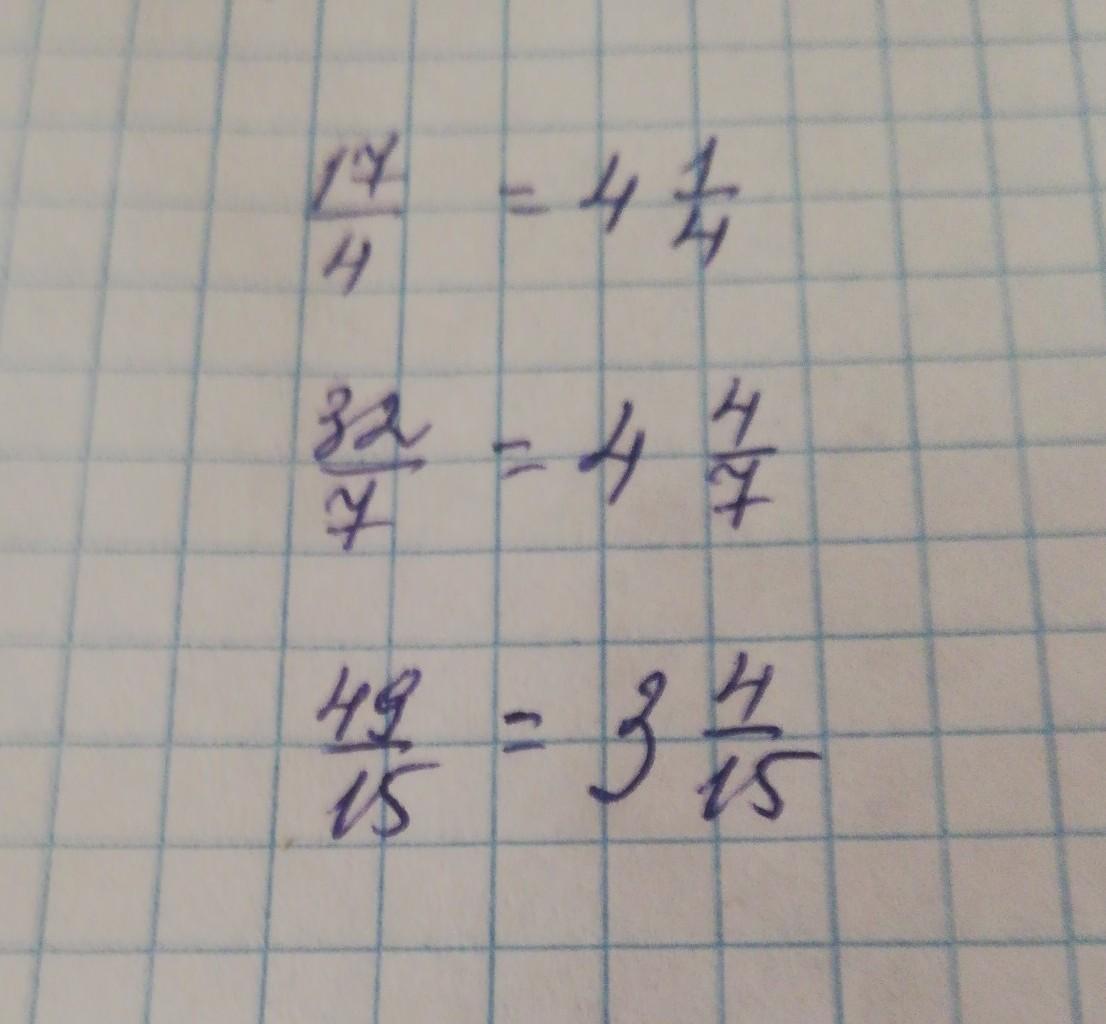 17/4 = 4 1/4
32/7 = 4 4/7
49/15 = 3 4/15